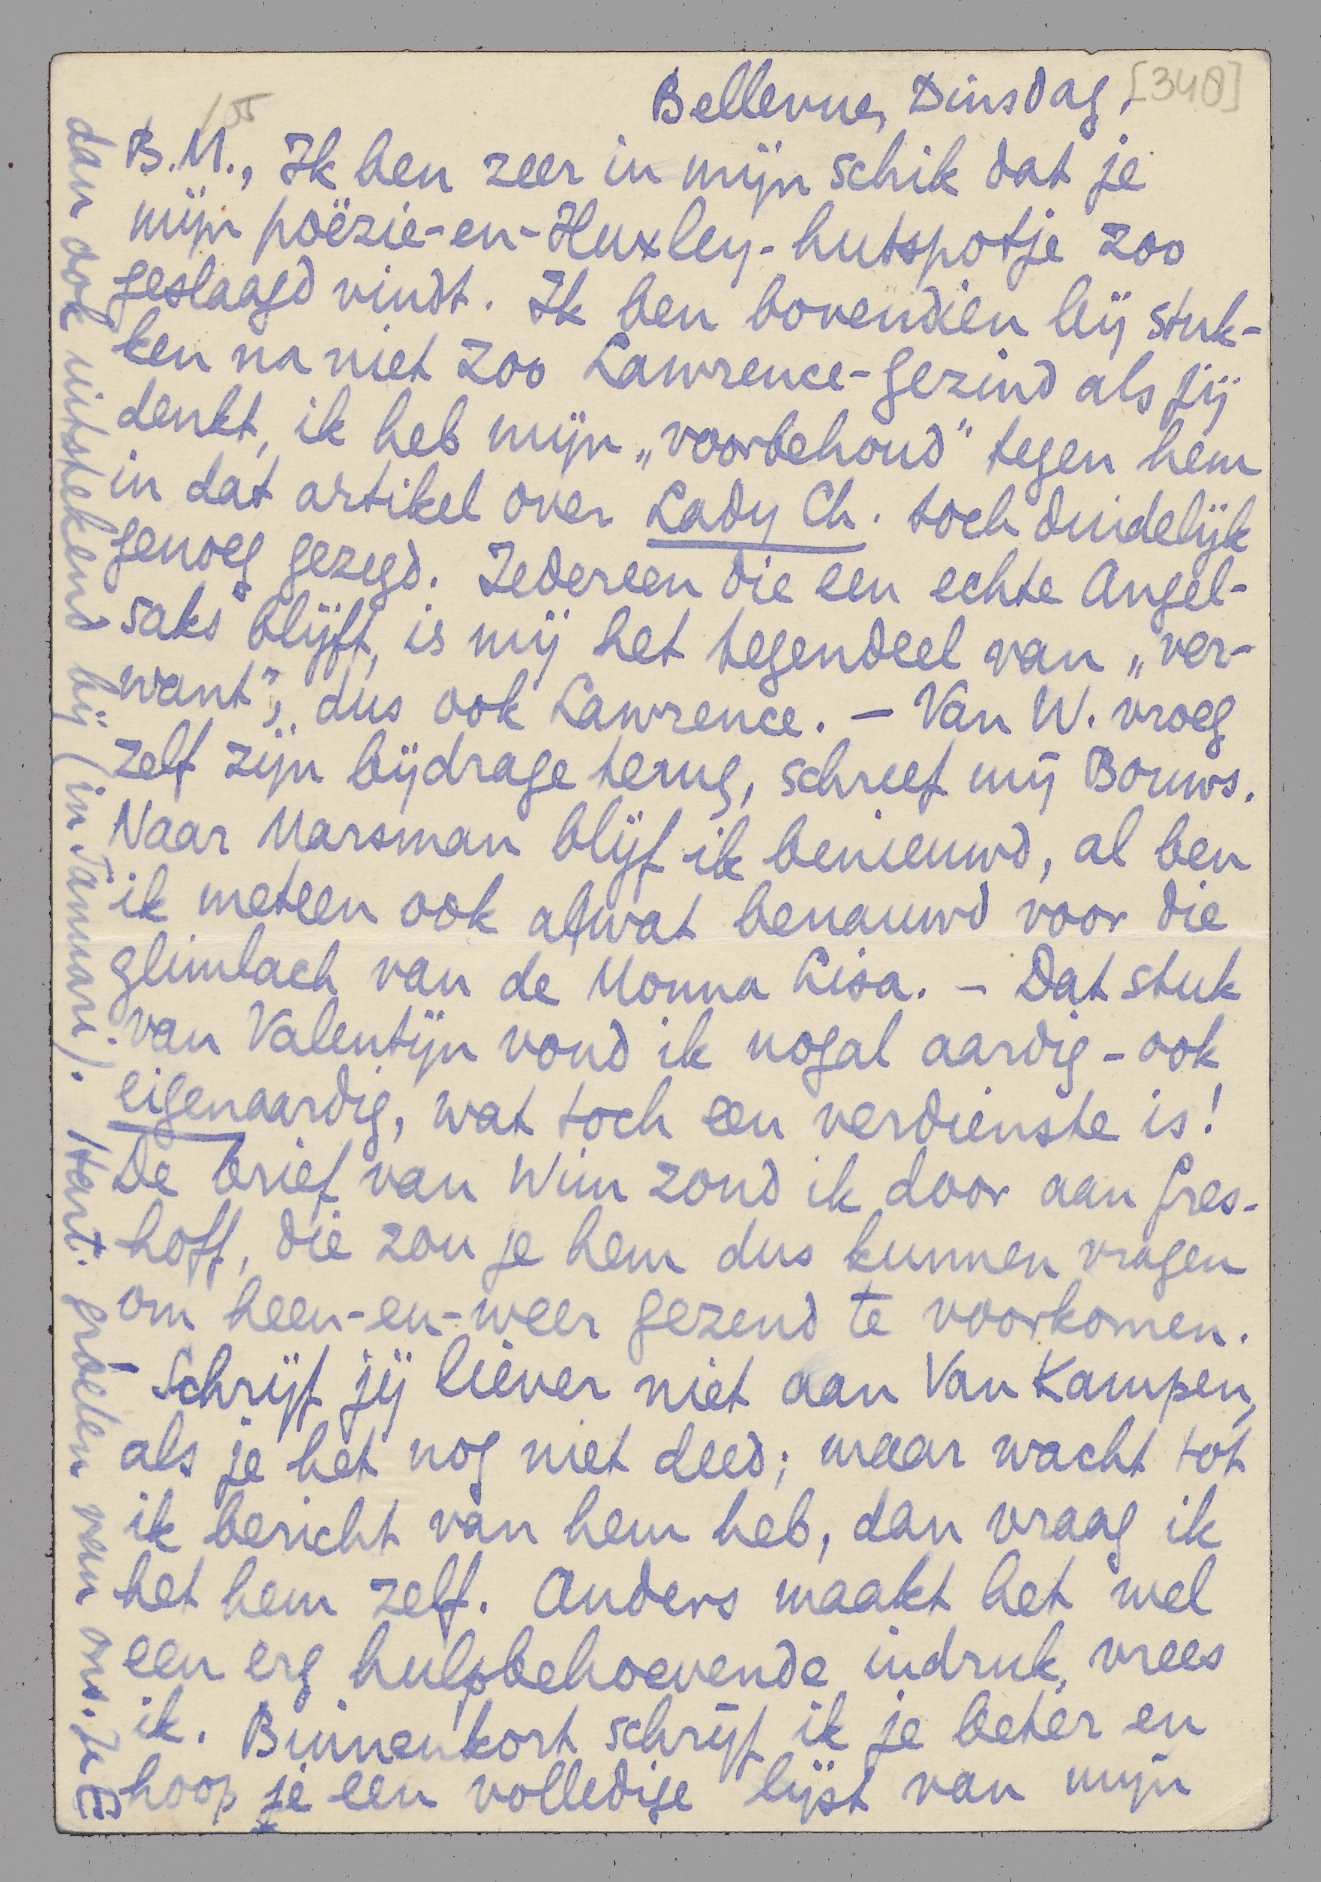 Bellevue, Dinsdag. [340]
105
B.M., Ik ben zeer in mijn schik dat je
mijn poëzie-en-Huxley-hutspotje zoo
geslaagd vindt. Ik ben bovendien bij stuk-
ken na niet zoo Lawrence-gezind als jij
denkt, ik heb mijn „voorbehoud" tegen hem
in dat artikel over Lady Ch. toch duidelijk
genoeg gezegd. Iedereen die een echte Angel-
saks blijft, is mij het tegendeel van „ver-
want", dus ook Lawrence. – Van W. vroeg
zelf zijn bijdrage terug, schreef mij Bouws.
Naar Marsman blijf ik benieuwd, al ben
ik meteen ook alwat benauwd voor die
glimlach van de Monna Lisa. – Dat stuk
van Valentijn vond ik nogal aardig – ook
eigenaardig, wat toch een verdienste is!
De brief van Wim zond ik door aan Gres-
hoff, die zou je hem dus kunnen vragen
om heen-en-weer gezend te voorkomen.
– Schrijf jij liever niet aan Van Kampen,
als je het nog niet deed; maar wacht tot
ik bericht van hem heb, dan vraag ik
het hem zelf. Anders maakt het wel
een erg hulpbehoevende indruk, vrees
ik. Binnenkort schrijf ik je beter en
hoop je een volledige lijst van mijn
dan ook uitstekend bij (in Januari). Hart. groeten van ons. Je E